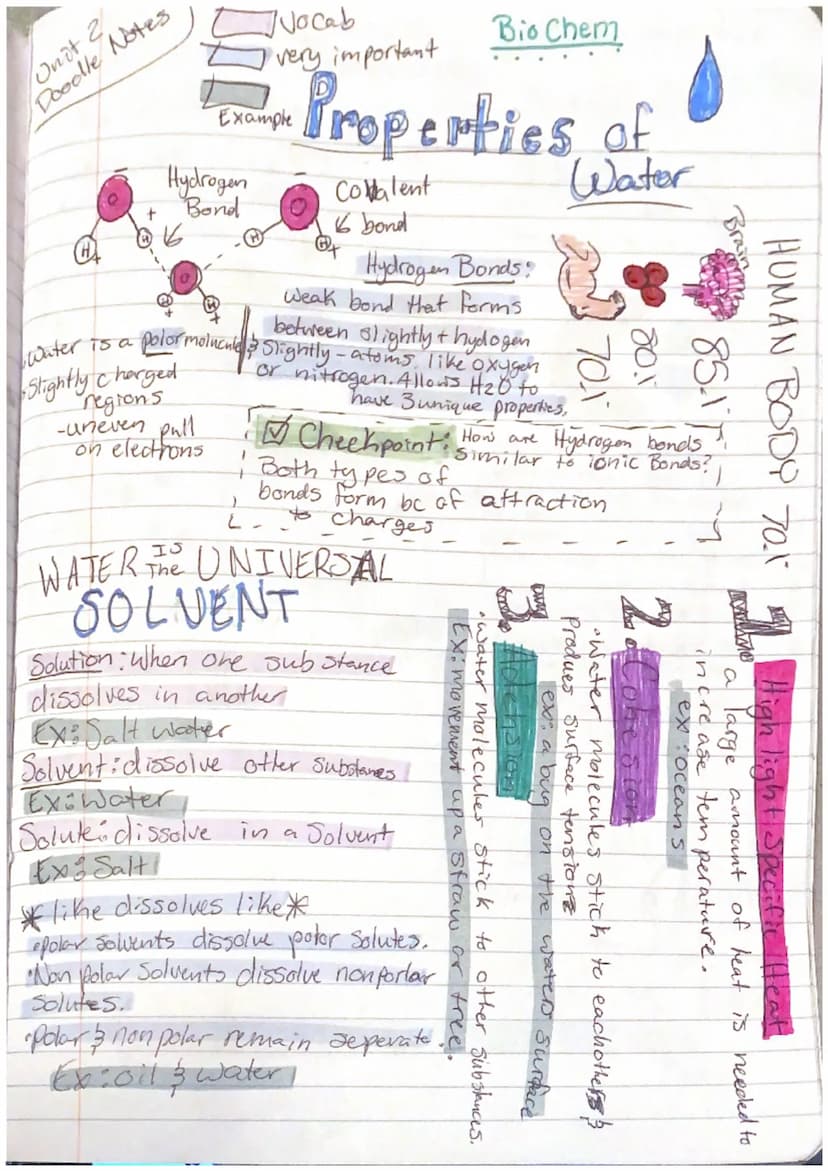 Unit 2
Doodle Notes
Vocab
very important
Example
BioChem
Properties of
Water
Hydrogen
Bond
Covalent
bond
- O H + H +
- O H H +
O H + H +
Water is a polar molucule
· Slightly charged
regions
- uneven pull
on electrons
Hydrogen Bonds:
weak bond that forms
between slightly + hydogen
& Slightly - atoms, like oxygen
or nitrogen. Allows H2O to
have 3 unique properties.
☑ Checkpoint: How are Hydrogen bonds
similar to ionic Bonds?
Both types of
bonds form bc of attraction
to charges
HUMAN BODY 70%
Brain
85%
80%
70%
WATER IS The UNIVERSAL
SOLVENT
Solution: When one substance
dissolves in another
Ex: Salt water
Solvent: dissolve other substances
Ex: Water
Solute: dissolve in a Solvent
Ex: Salt
*like dissolves like*
· Polar solvents dissolve polar solutes.
· Non polar Solvents dissolve nonporlar
Solutes.
· Polar & nonpolar remain seperate.
Ex: oil & water
1. High light Specific Heat
a large amount of heat is needed to
increase temperature.
ex: oceans
2. Cohesion
· Water molecules stick to eachothers &
produes surface tensions
ex: a bug on the waters surface
3. Adehsion
· Water molecules stick to other substances.
Ex: movement up a straw or tree.